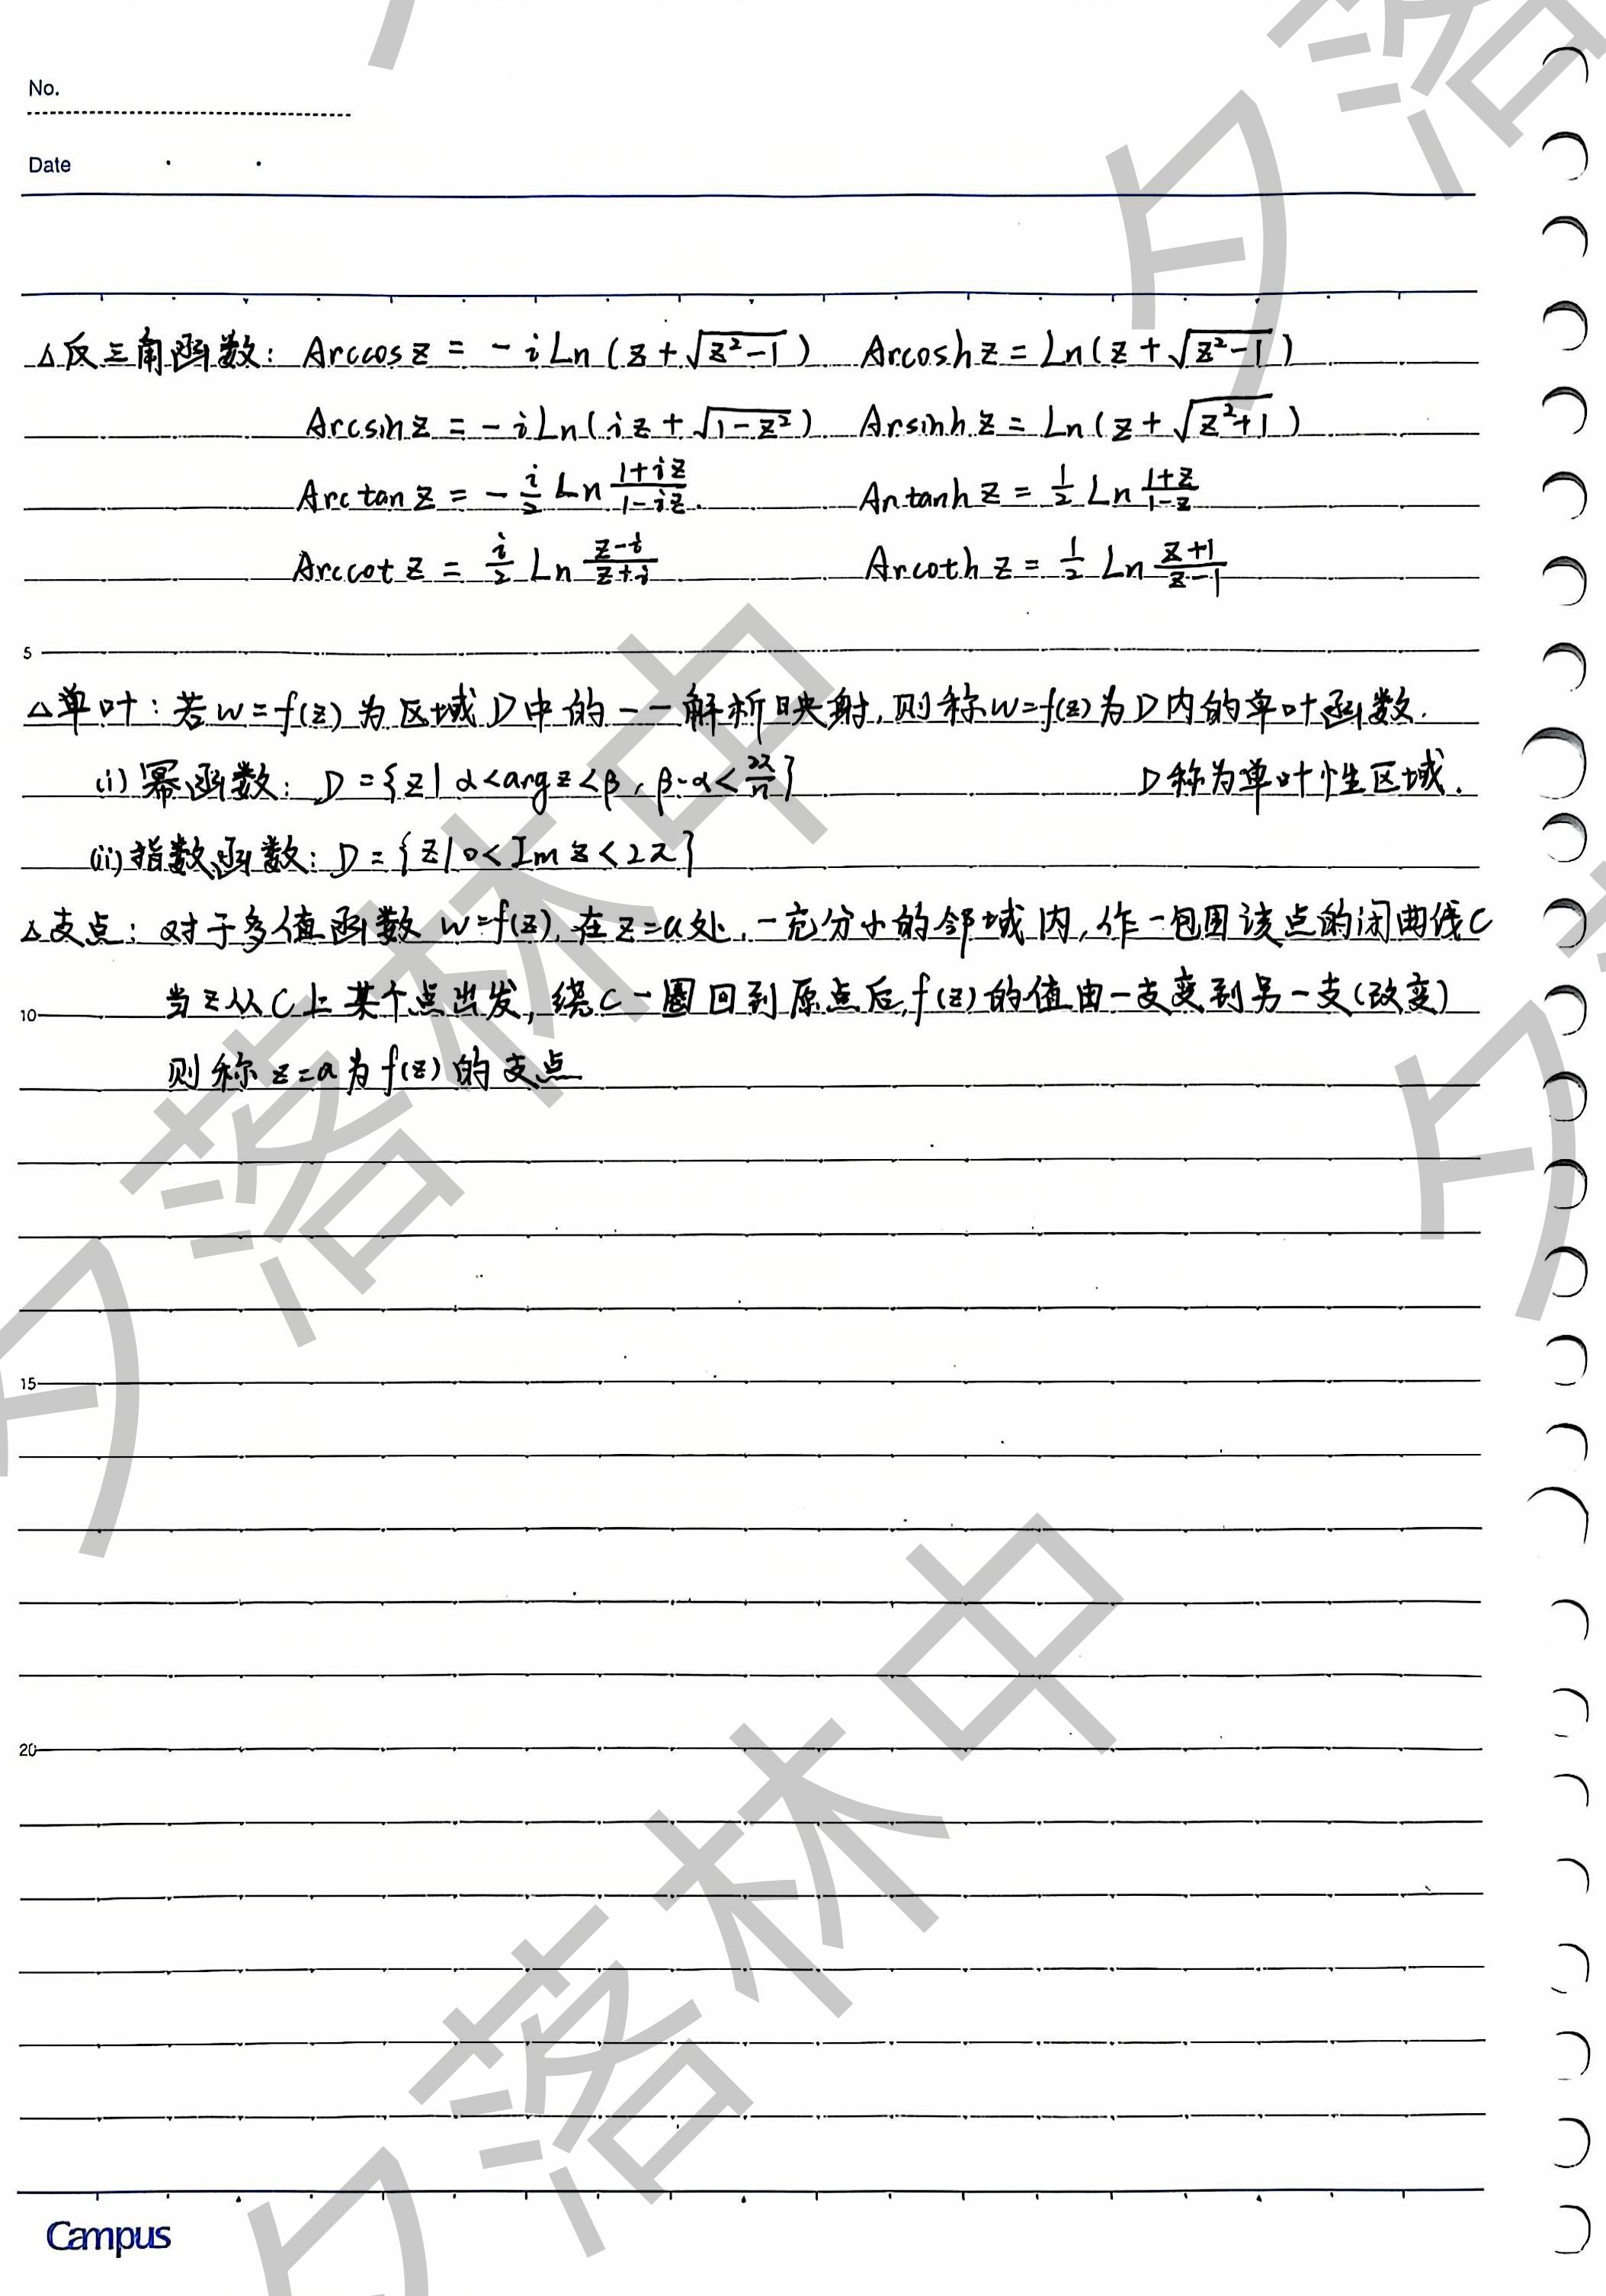 No.
Date
△反三角函数: Arccos z = -i Ln(z + √(z²-1)) Arcosh z = Ln(z + √(z²-1))
Arcsin z = -i Ln(iz + √(1-z²)) Arsinh z = Ln(z + √(z²+1))
Arctan z = -i/2 Ln (1+iz)/(1-iz). Artanh z = 1/2 Ln (1+z)/(1-z)
Arccot z = i/2 Ln (z-i)/(z+i) Arcoth z = 1/2 Ln (z+1)/(z-1)
5
△单叶: 若w=f(z)为区域D中的一一解析映射,则称w=f(z)为D内的单叶函数.
(i)幂函数: D={z|α<arg z<β, β-α<2π/n} D称为单叶性区域.
(ii)指数函数: D={z|0<Im z<2π}
△支点: 对于多值函数 w=f(z),在z=a处,一充分小的邻域内,作一包围该点的闭曲线C
10 当z从C上某个点出发,绕C一圈回到原点后,f(z)的值由一支变到另一支(改变)
则称z=a为f(z)的支点
15
20
Campus
夕落林中
夕落林中
夕落
夕